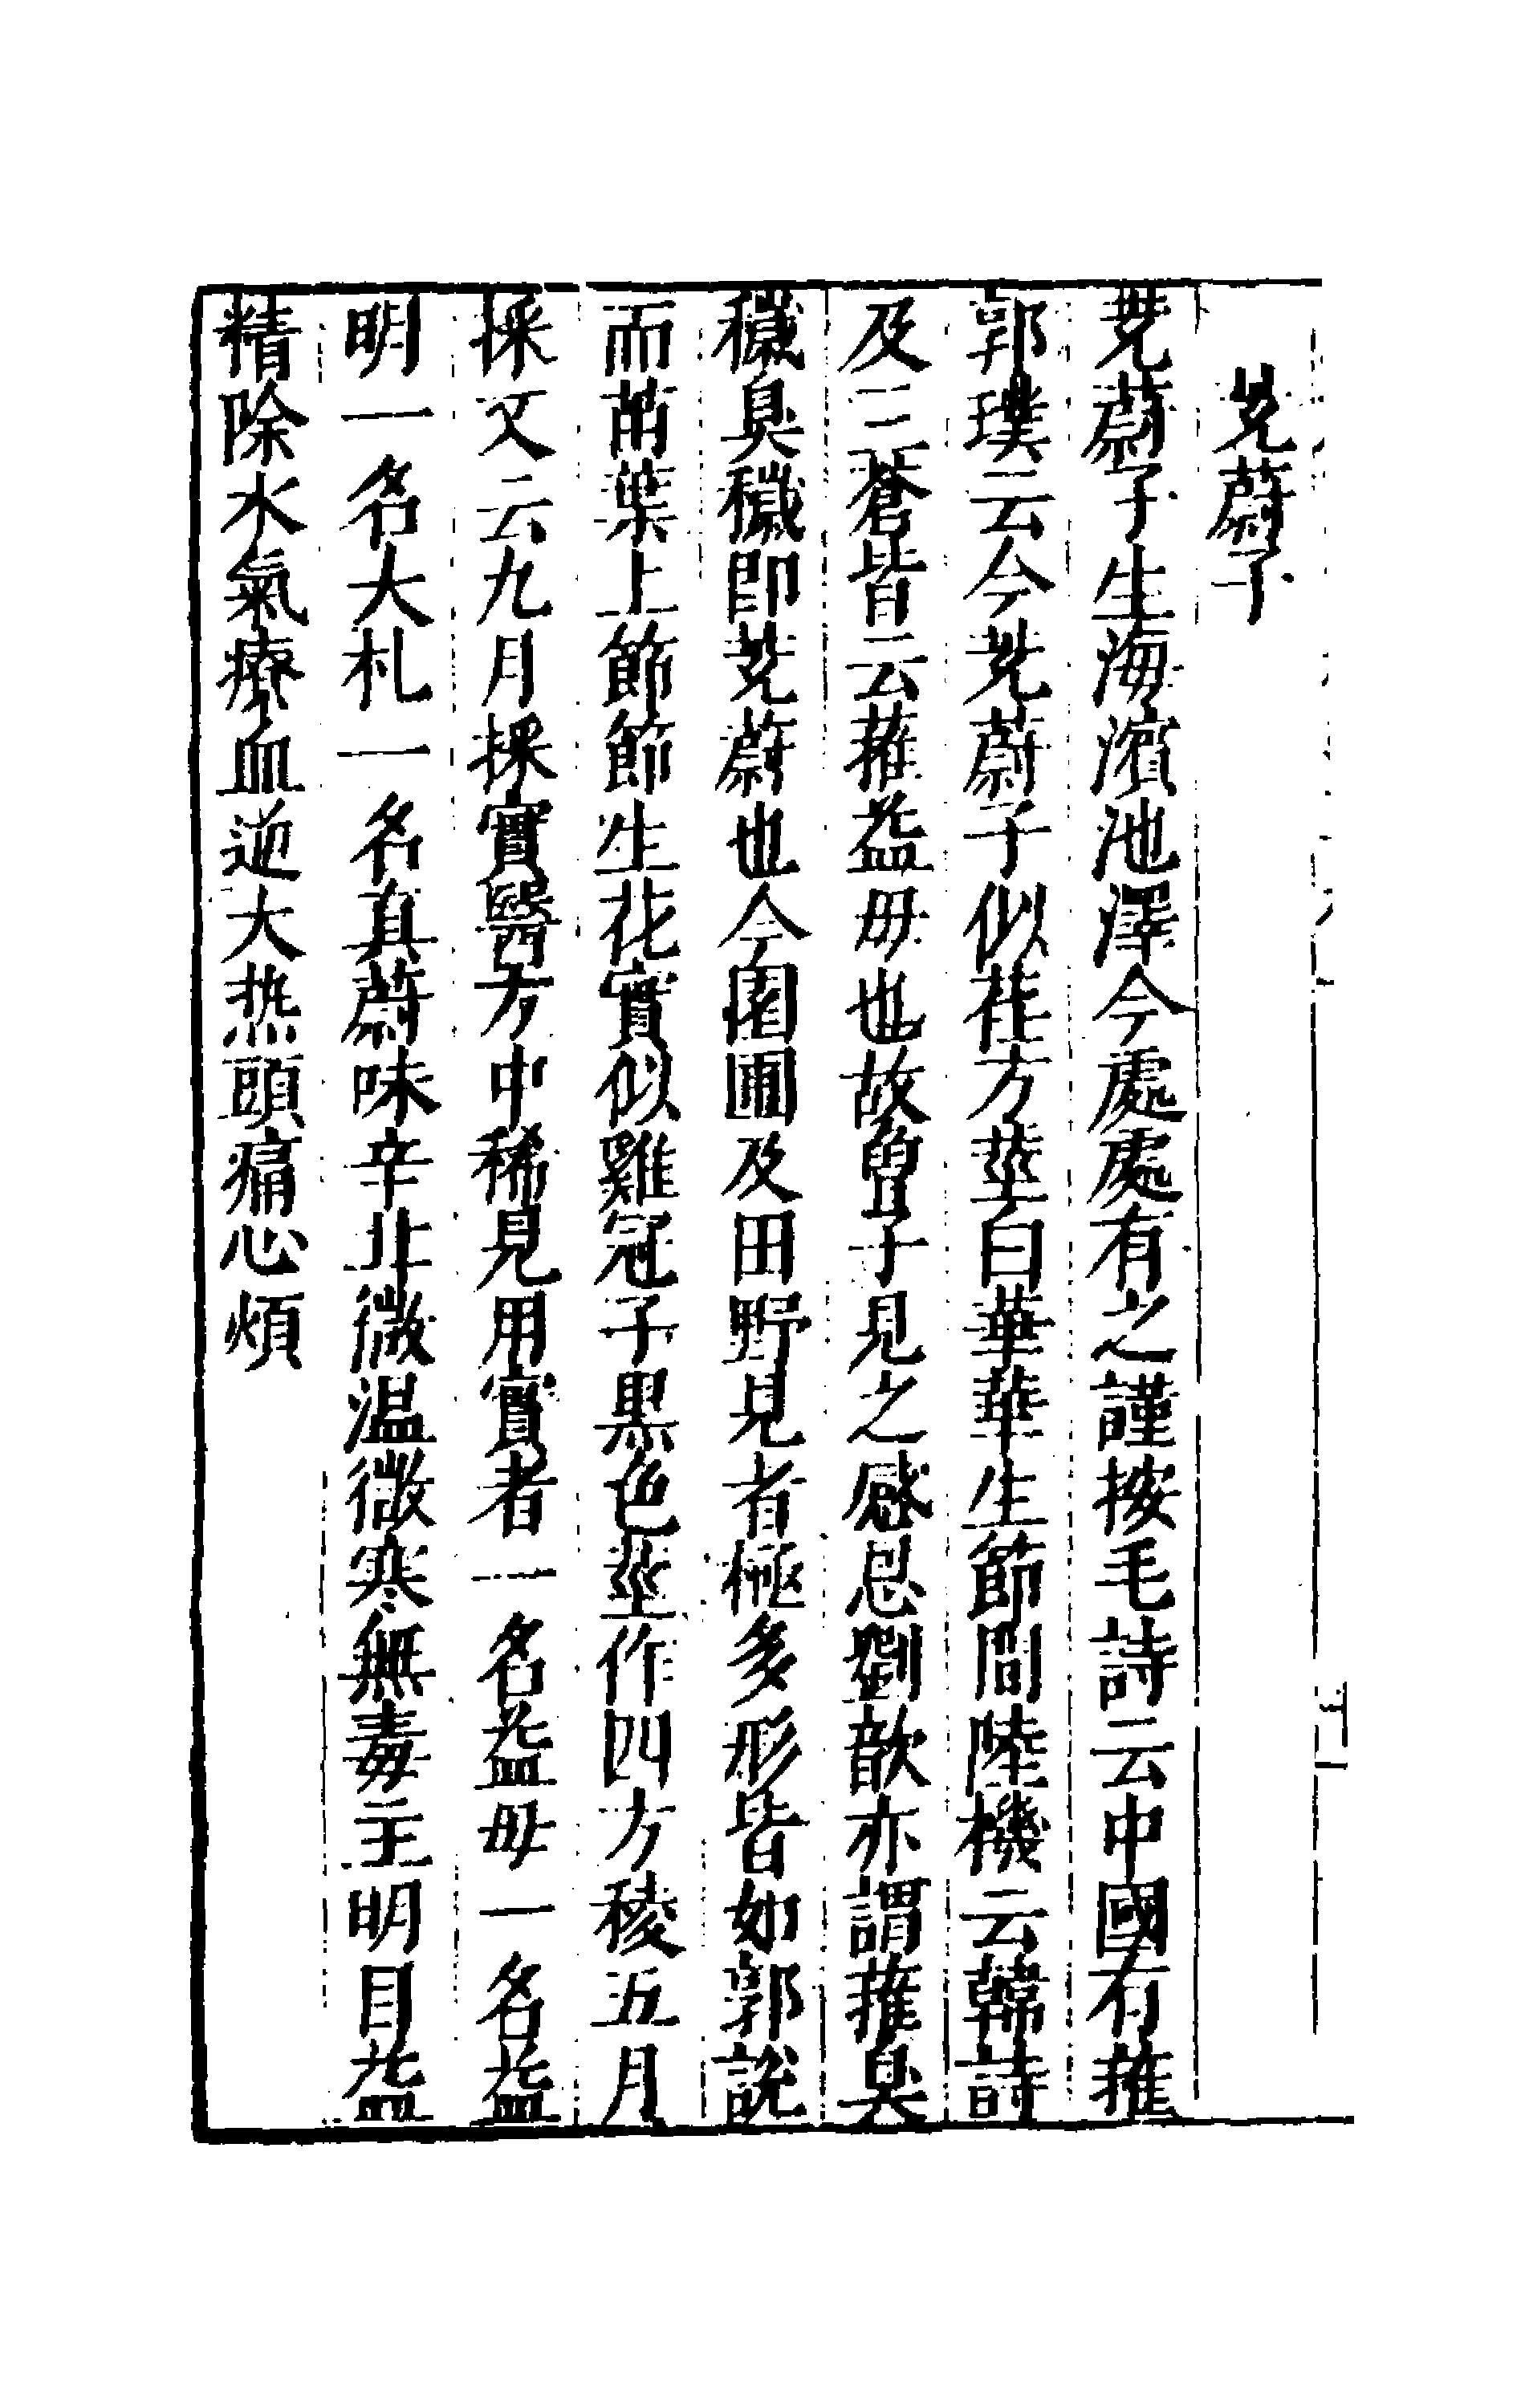 茺蔚子
茺蔚子生海濱池澤今處處有之謹按毛詩云中國有蓷
郭璞云今茺蔚子似荏方莖白華華生節間陸機云韓詩
及三蒼皆云蓷益母也故曾子見之感思劉歆亦謂蓷臭
穢臭穢即茺蔚也今園圃及田野見者極多形皆如郭說
而苗葉上節節生花實似雞冠子黑色莖作四方稜五月
採又云九月採實醫方中稀見用實者一名益母一名益
明一名大札一名真蔚味辛甘微温微寒無毒主明目益
精除水氣療血逆大热頭痛心煩